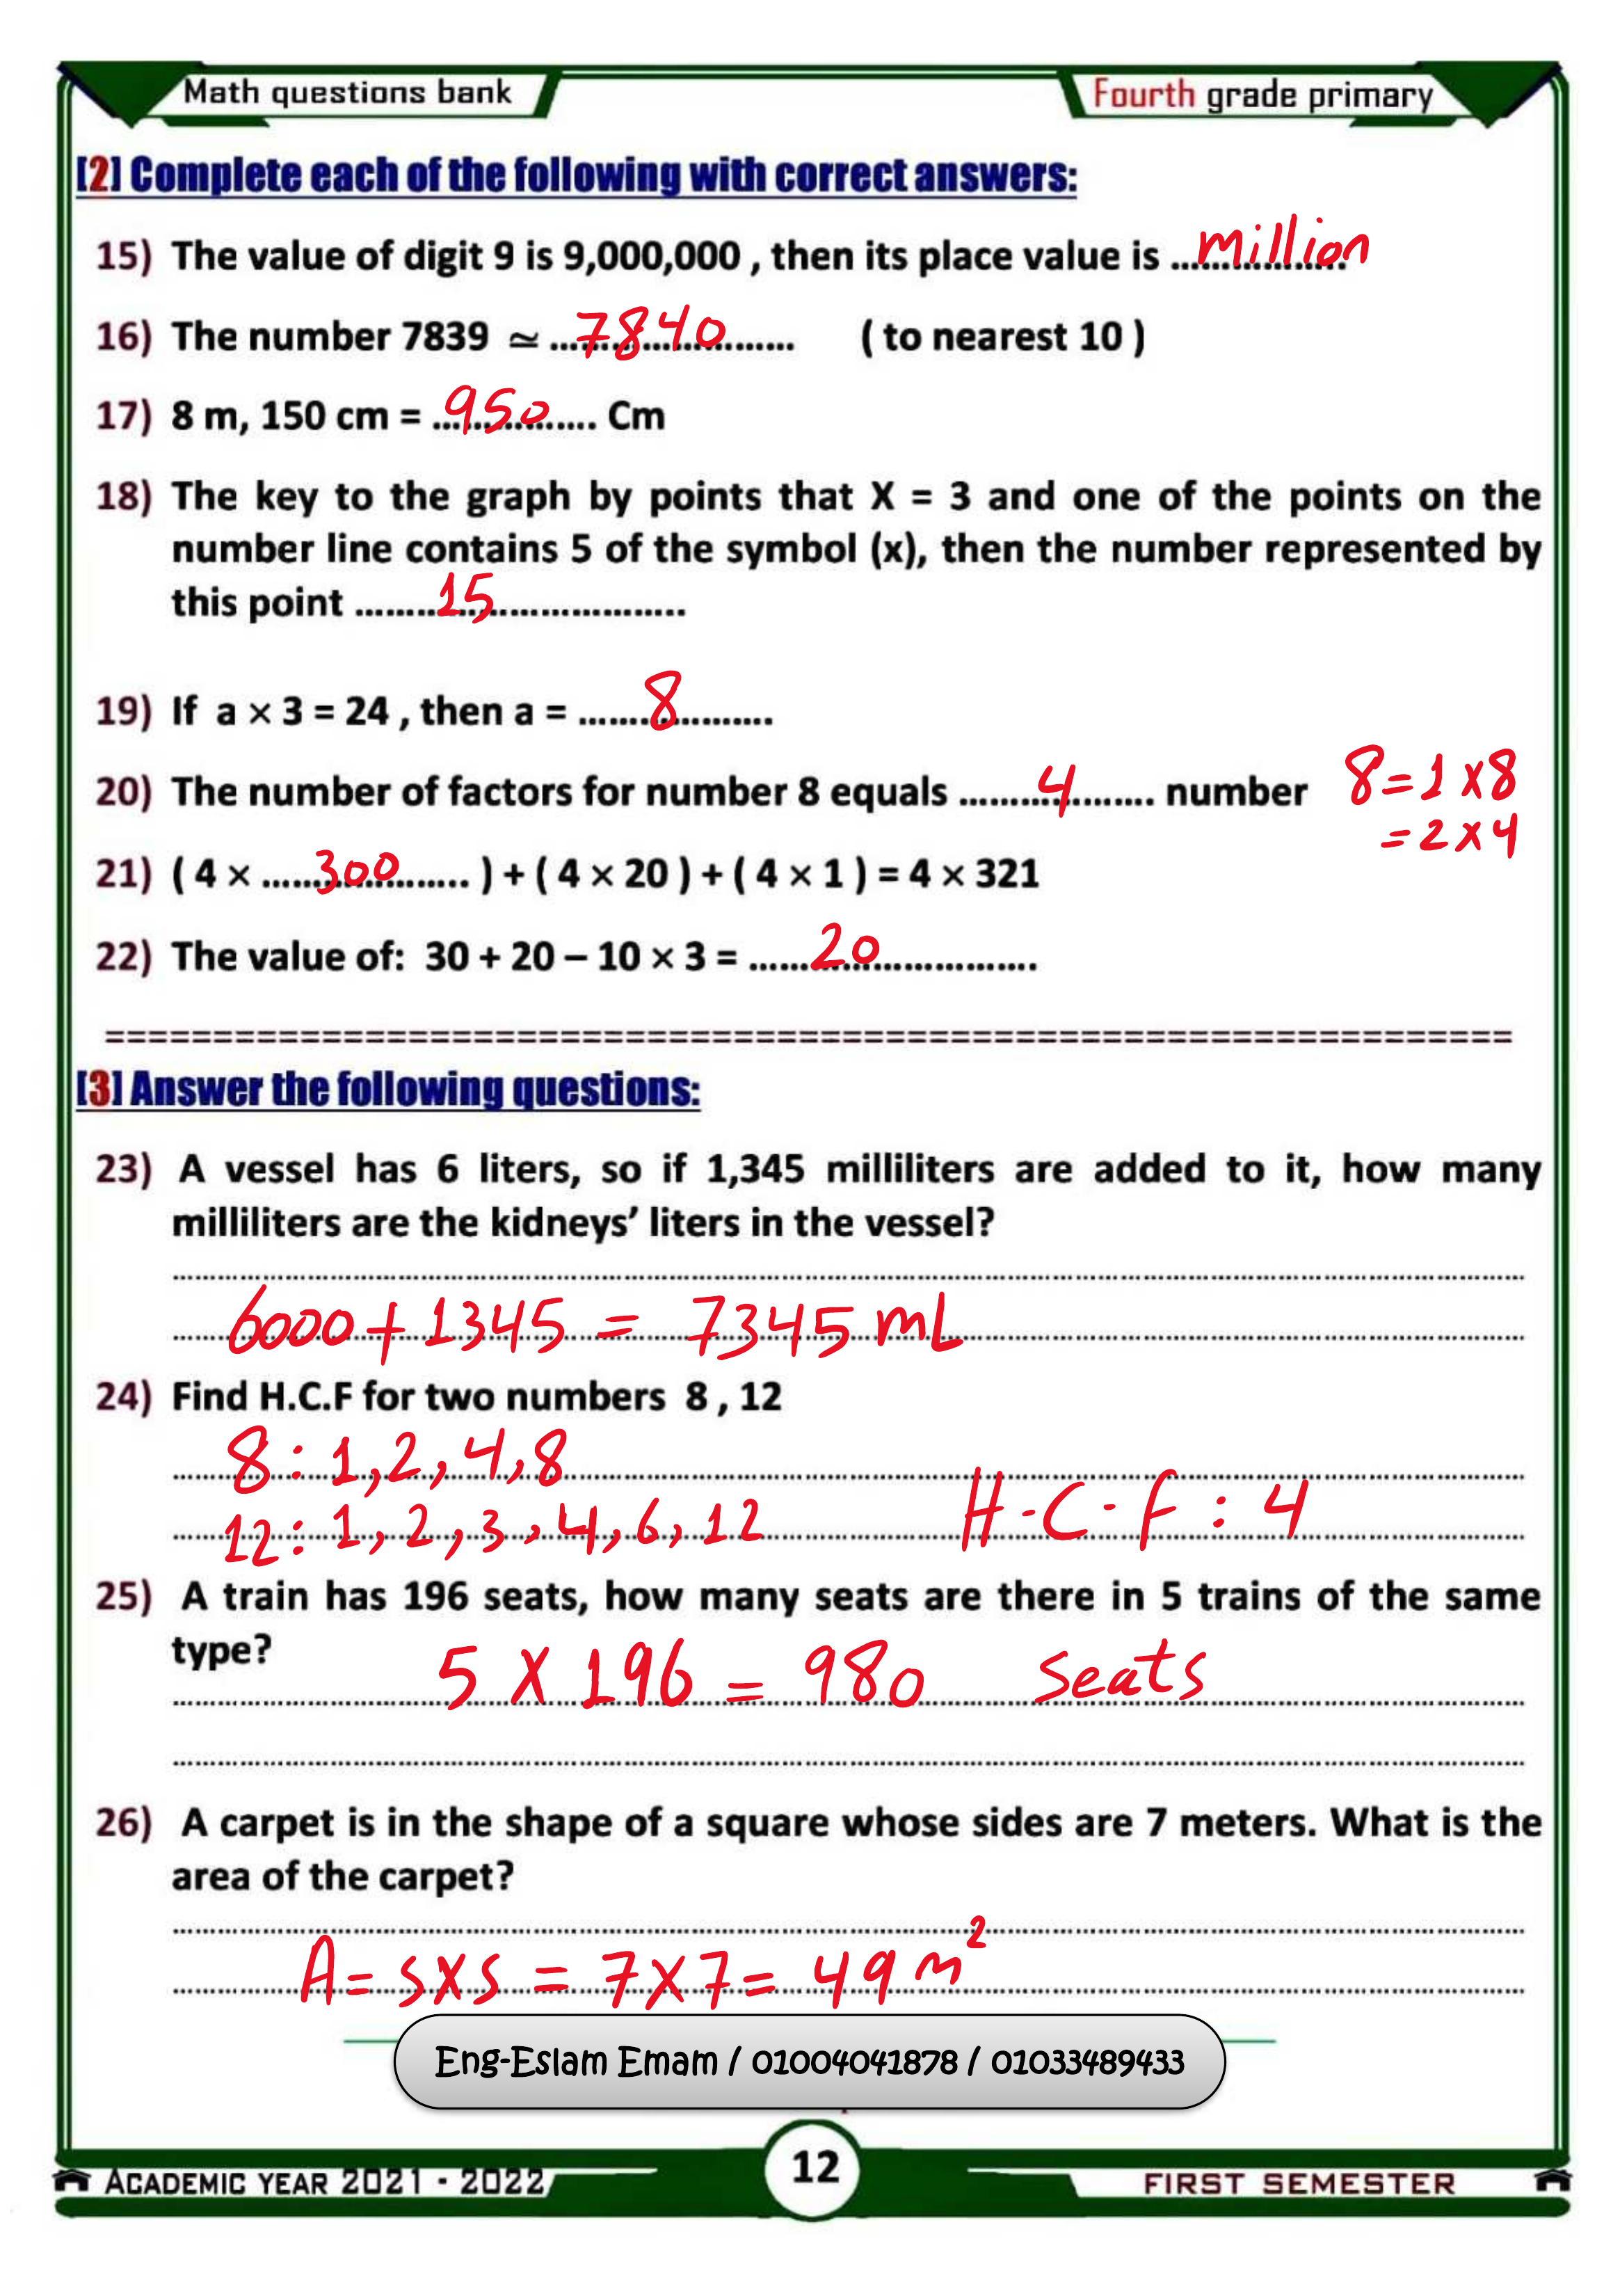 Math questions bank
Fourth grade primary
[2] Complete each of the following with correct answers:
15) The value of digit 9 is 9,000,000 , then its place value is ....million....
16) The number 7839 ≃ ....7840.... ( to nearest 10 )
17) 8 m, 150 cm = ....950.... Cm
18) The key to the graph by points that X = 3 and one of the points on the
number line contains 5 of the symbol (x), then the number represented by
this point ....15....
19) If a × 3 = 24 , then a = ....8....
20) The number of factors for number 8 equals ....4.... number 8=1×8
=2×4
21) ( 4 × ....300.... ) + ( 4 × 20 ) + ( 4 × 1 ) = 4 × 321
22) The value of: 30 + 20 – 10 × 3 = ....20....
[3] Answer the following questions:
23) A vessel has 6 liters, so if 1,345 milliliters are added to it, how many
milliliters are the kidneys’ liters in the vessel?
6000+1345 = 7345 mL
24) Find H.C.F for two numbers 8 , 12
8 : 1,2,4,8
12 : 1,2,3,4,6,12 H.C.F : 4
25) A train has 196 seats, how many seats are there in 5 trains of the same
type?
5 × 196 = 980 seats
26) A carpet is in the shape of a square whose sides are 7 meters. What is the
area of the carpet?
A= s×s = 7×7= 49 m²
Eng-Eslam Emam / 01004041878 / 01033489433
12
ACADEMIC YEAR 2021 - 2022
FIRST SEMESTER